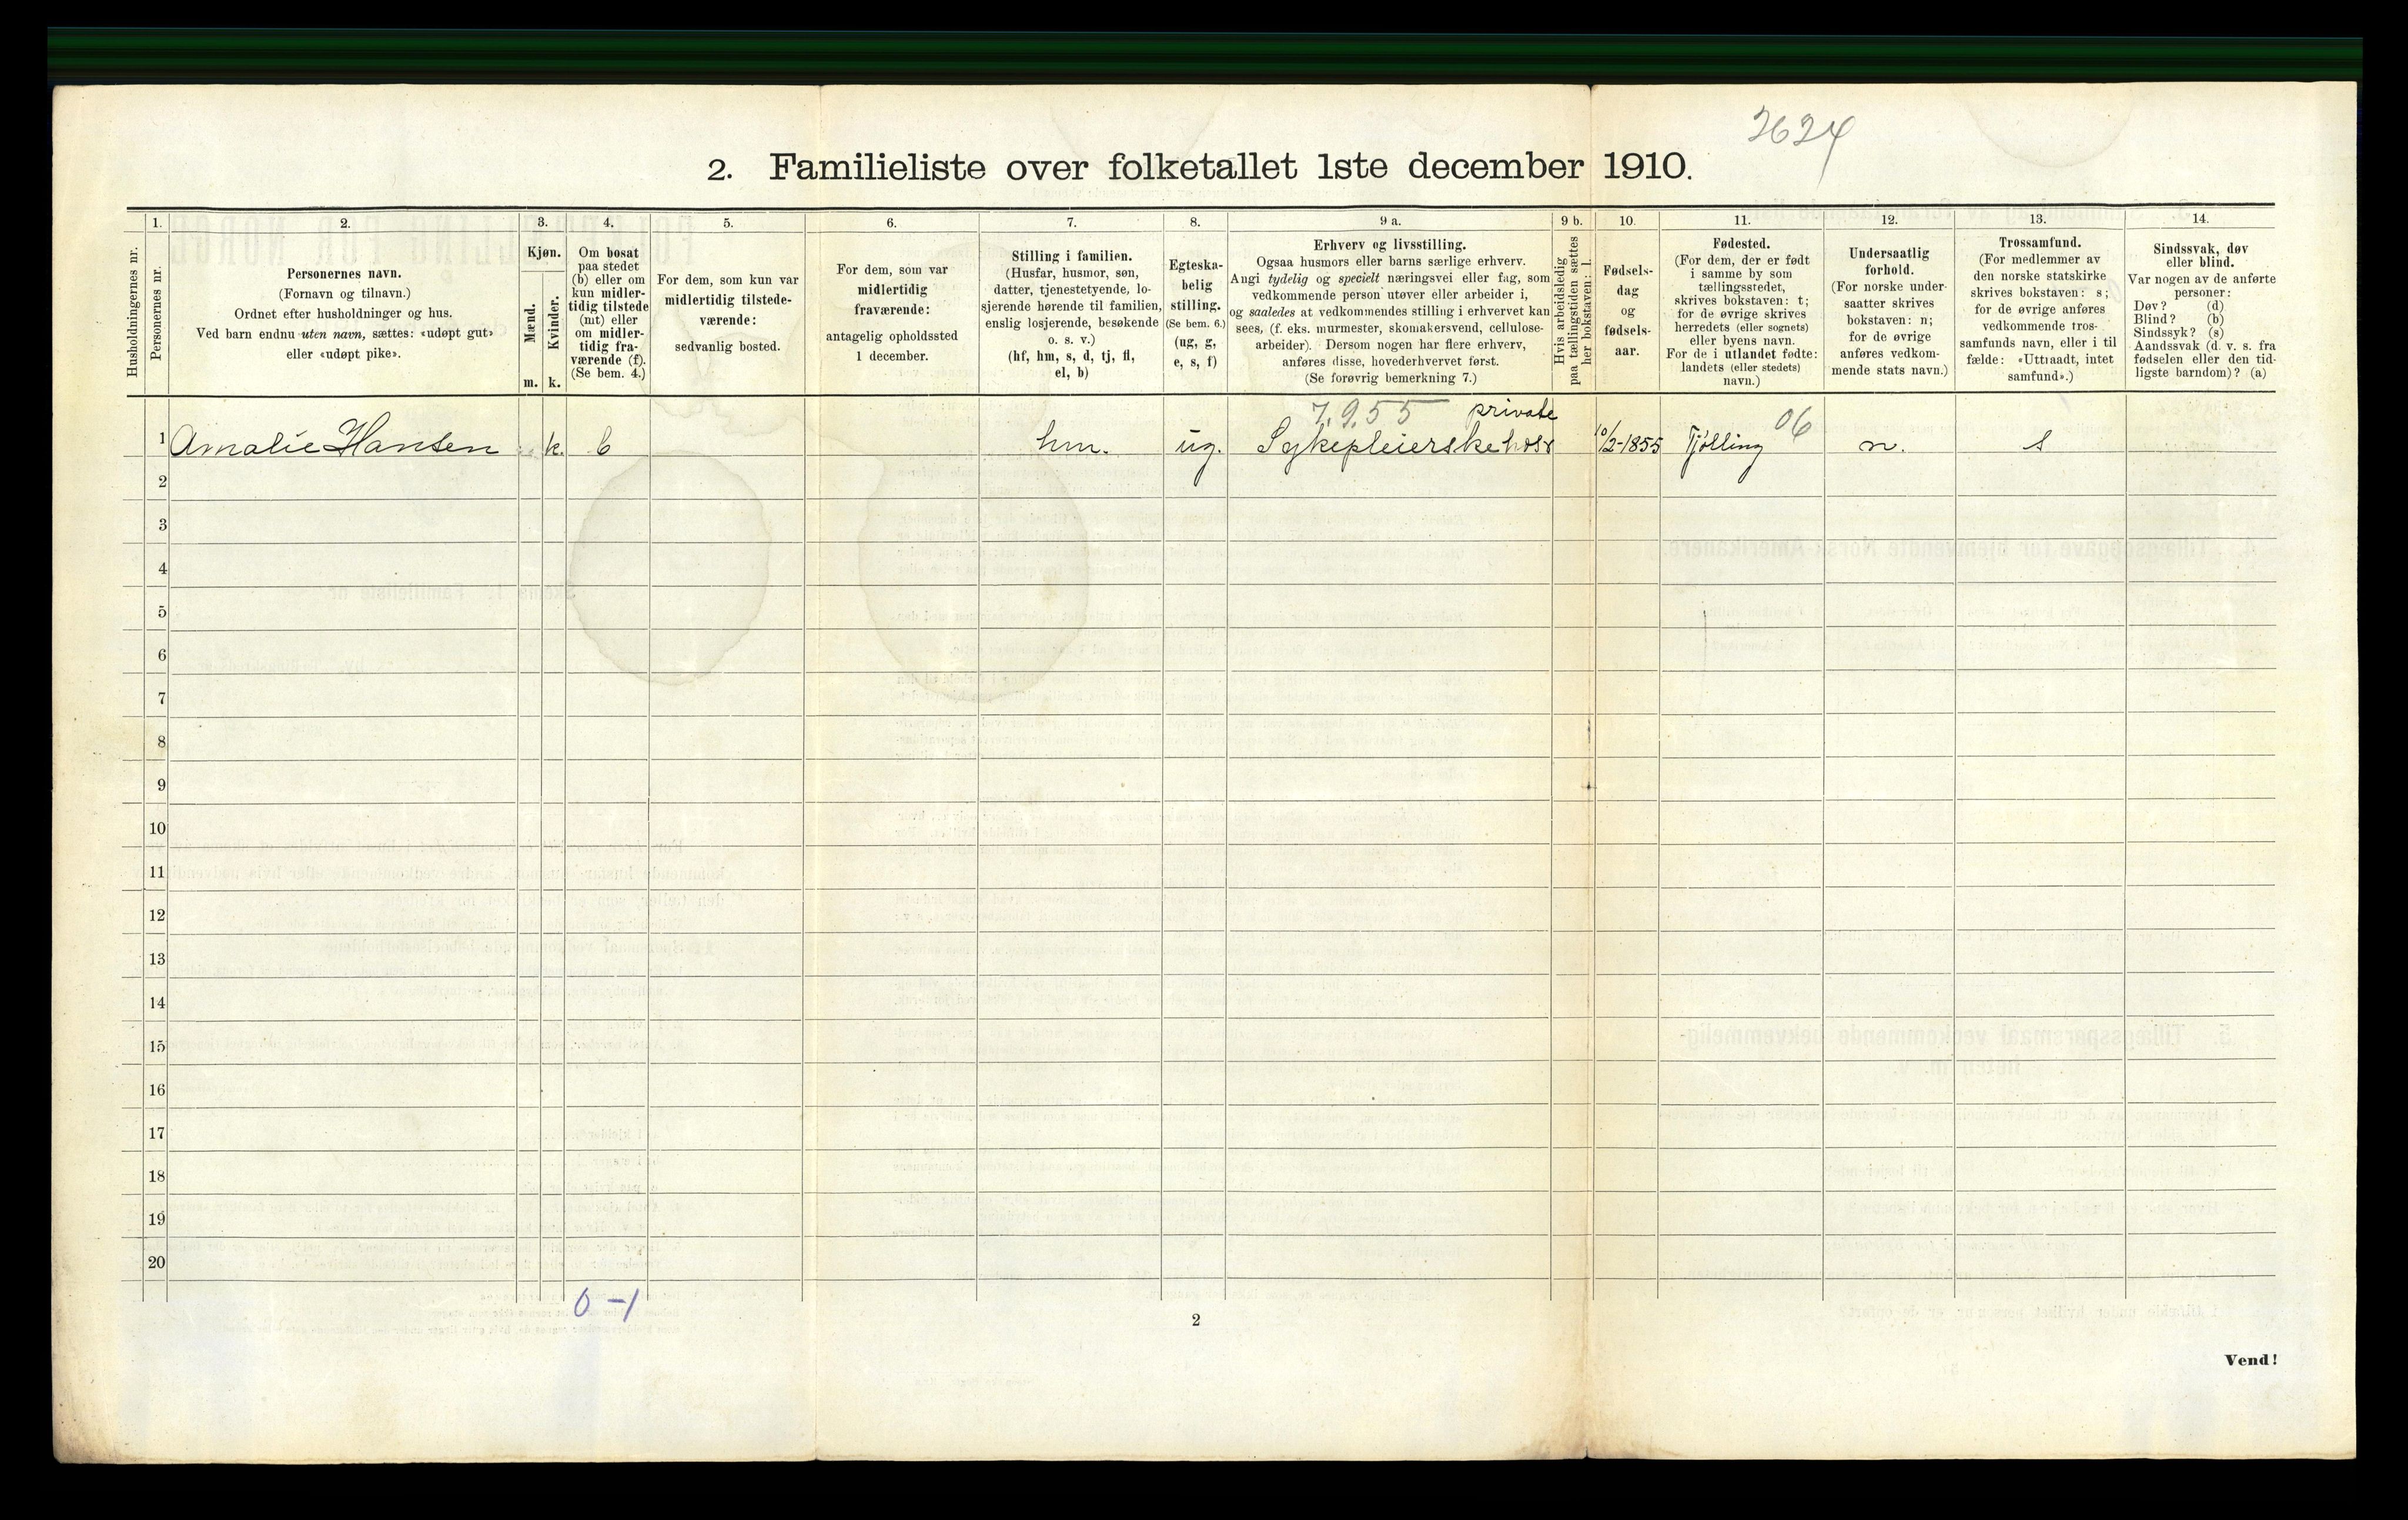 2624
2. Familieliste over folketallet 1ste december 1910.
1. 2. 3. 4. 5. 6. 7. 8. 9 a. 9 b. 10. 11. 12. 13. 14.
Husholdningernes nr.
Personernes nr.
Personernes navn.
(Fornavn og tilnavn.)
Ordnet efter husholdninger og hus.
Ved barn endnu uten navn, sættes: «udøpt gut»
eller «udøpt pike».
Kjøn.
Mænd.
m.
Kvinder.
k.
Om bosat
paa stedet
(b) eller om
kun midler-
tidig tilstede
(mt) eller
om midler-
tidig fra-
værende (f).
(Se bem. 4.)
For dem, som kun var
midlertidig tilstede-
værende:
sedvanlig bosted.
For dem, som var
midlertidig
fraværende:
antagelig opholdssted
1 december.
Stilling i familien.
(Husfar, husmor, søn,
datter, tjenestetyende, lo-
sjerende hørende til familien,
enslig losjerende, besøkende
o. s. v.)
(hf, hm, s, d, tj, fl,
el, b)
Egteska-
belig
stilling.
(Se bem. 6.)
(ug, g,
e, s, f)
Erhverv og livsstilling.
Ogsaa husmors eller barns særlige erhverv.
Angi tydelig og specielt næringsvei eller fag, som
vedkommende person utøver eller arbeider i,
og saaledes at vedkommendes stilling i erhvervet kan
sees, (f. eks. murmester, skomakersvend, cellulose-
arbeider). Dersom nogen har flere erhverv,
anføres disse, hovederhvervet først.
(Se forøvrig bemerkning 7.)
Hvis arbeidsledig
paa tællingstiden sættes
her bokstaven: l.
Fødsels-
dag
og
fødsels-
aar.
Fødested.
(For dem, der er født
i samme by som
tællingsstedet,
skrives bokstaven: t;
for de øvrige skrives
herredets (eller sognets)
eller byens navn.
For de i utlandet fødte:
landets (eller stedets)
navn.)
Undersaatlig
forhold.
(For norske under-
saatter skrives
bokstaven: n;
for de øvrige
anføres vedkom-
mende stats navn.)
Trossamfund.
(For medlemmer av
den norske statskirke
skrives bokstaven: s;
for de øvrige anføres
vedkommende tros-
samfunds navn, eller i til
fælde: «Uttraadt, intet
samfund».)
Sindssvak, døv
eller blind.
Var nogen av de anførte
personer:
Døv? (d)
Blind? (b)
Sindssyk? (s)
Aandssvak (d. v. s. fra
fødselen eller den tid-
ligste barndom)? (a)
7.955 private 06
1 Amalie Hansen k. b hm. ug. Sykepleierske hos 10/2-1855 Tjølling n. s
2
3
4
5
6
7
8
9
10
11
12
13
14
15
16
17
18
19
20
0-1
2
Vend!